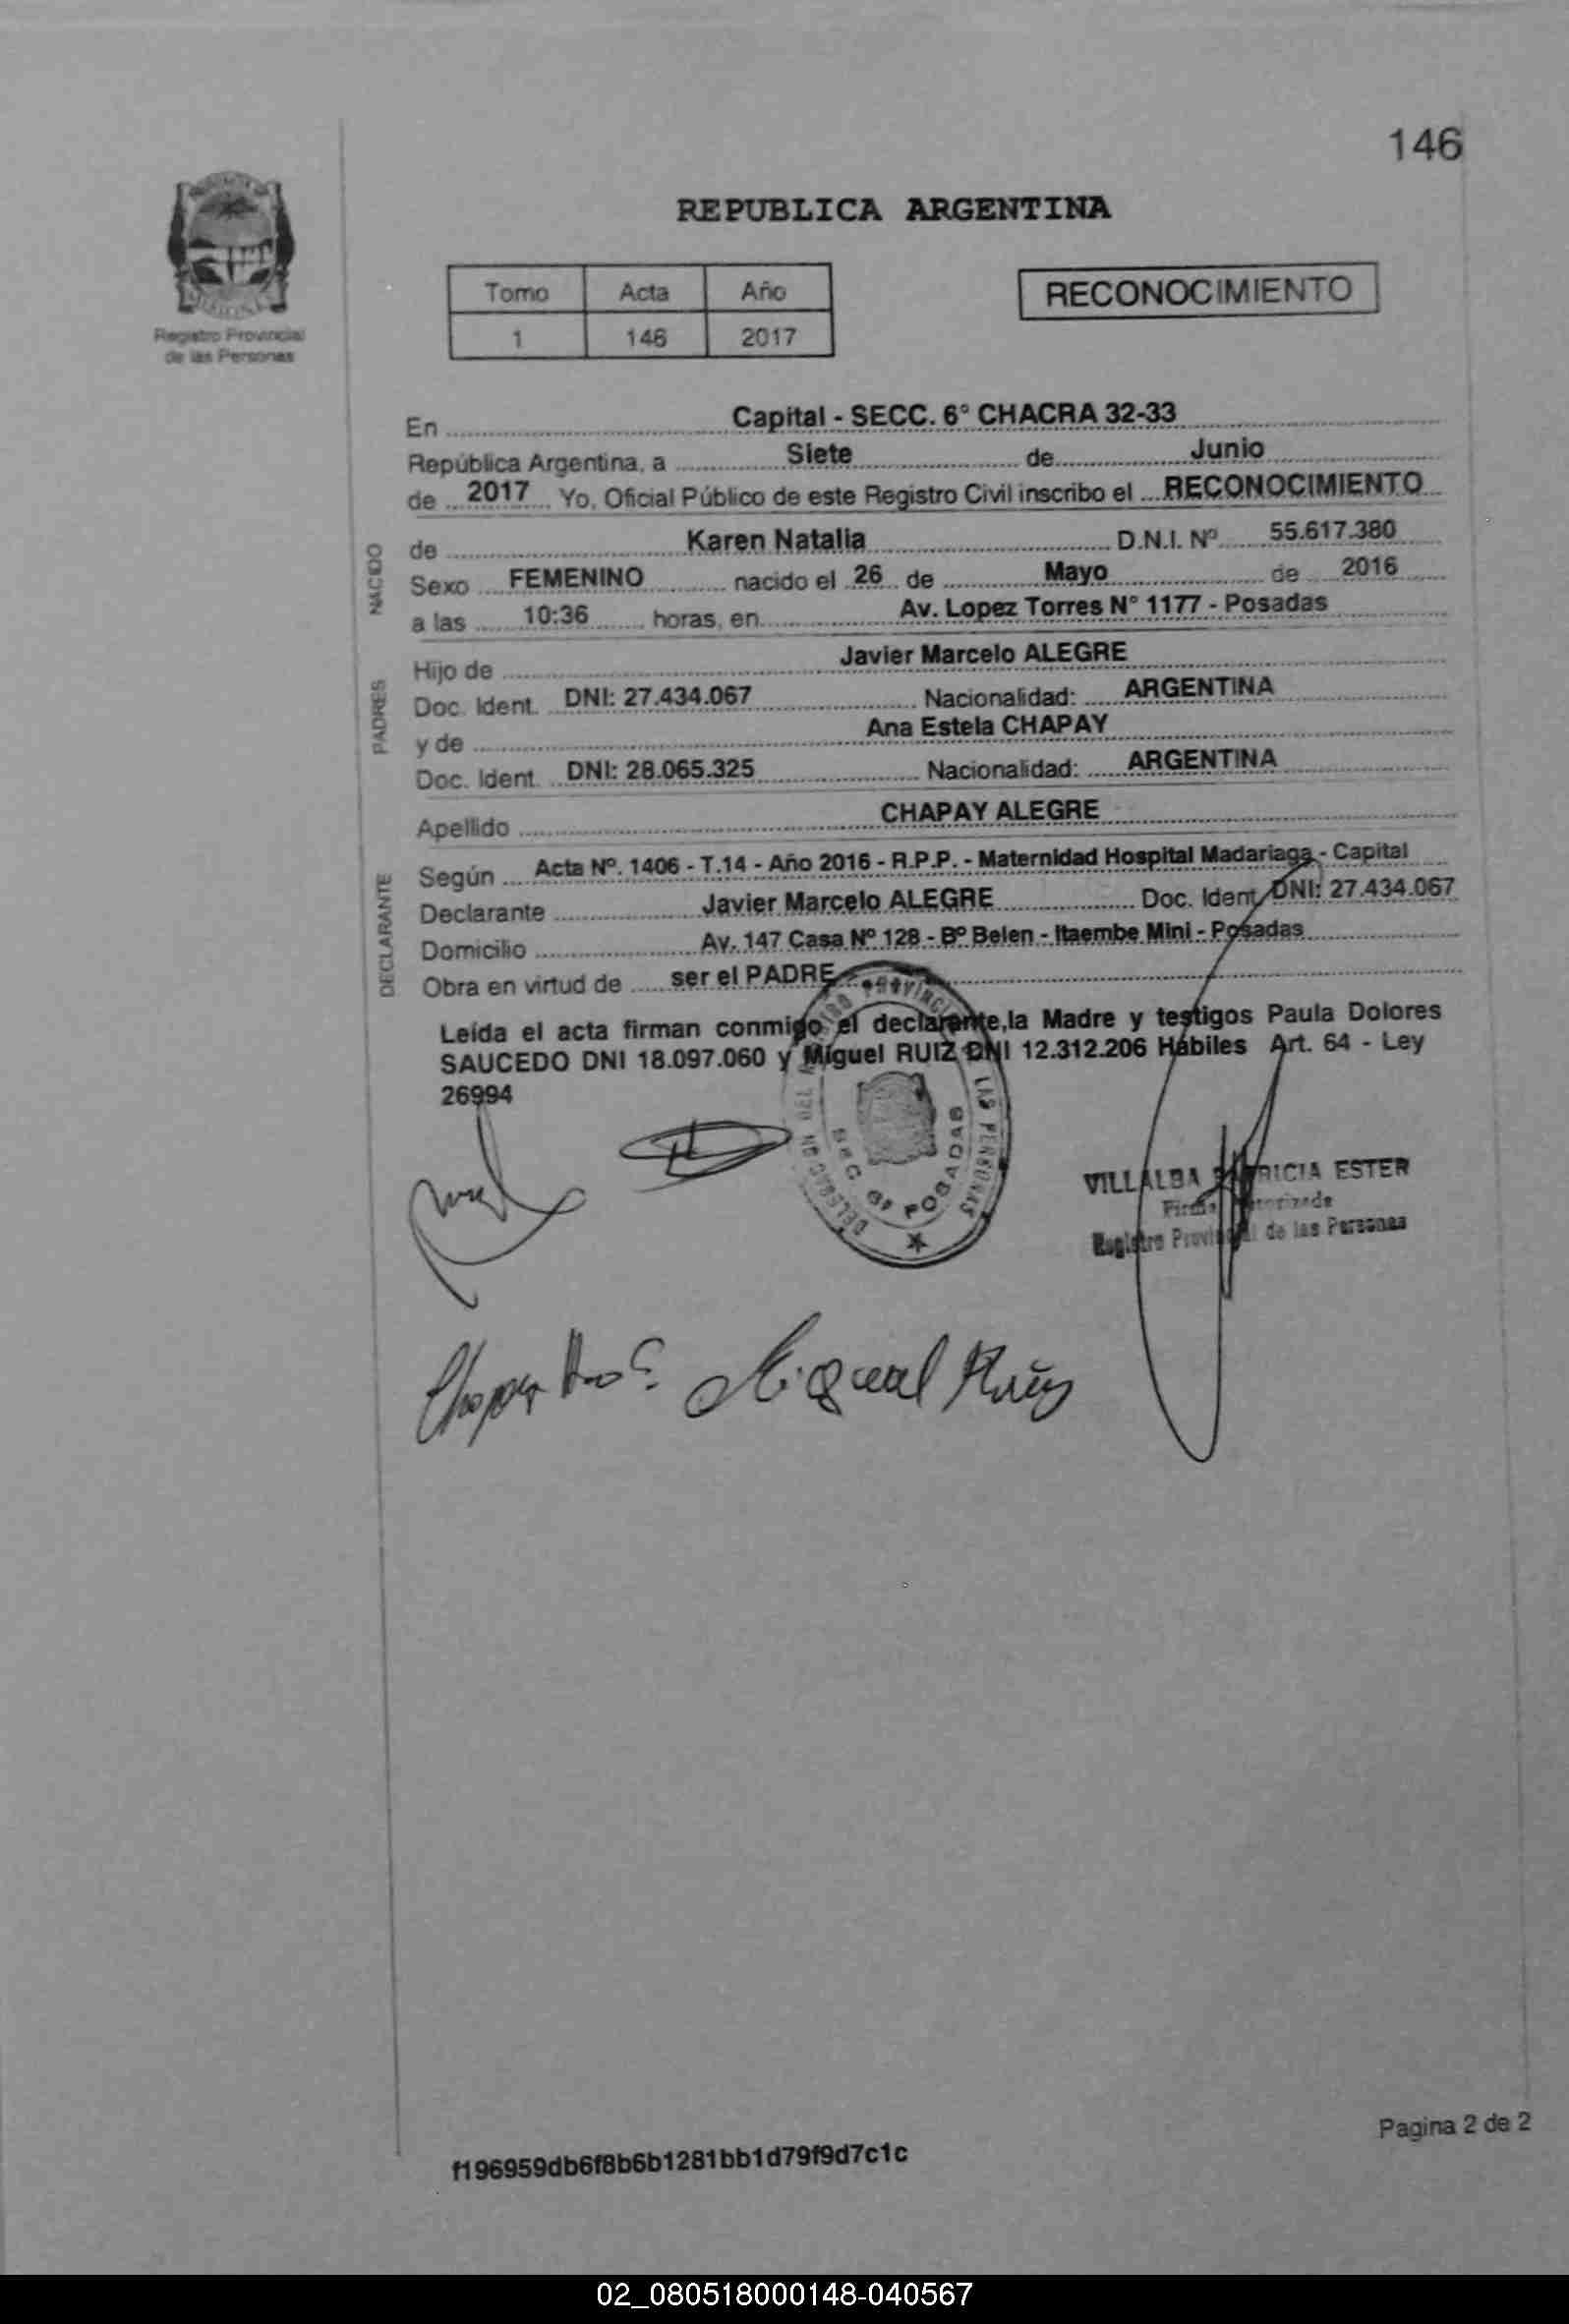 146
REPUBLICA ARGENTINA
Registro Provincial
de las Personas
Tomo Acta Año
1 146 2017
RECONOCIMIENTO
En Capital - SECC. 6° CHACRA 32-33
República Argentina, a Siete de Junio
de 2017 Yo, Oficial Público de este Registro Civil inscribo el RECONOCIMIENTO
NACIDO
de Karen Natalia D.N.I. Nº 55.617.380
Sexo FEMENINO nacido el 26 de Mayo de 2016
a las 10:36 horas, en Av. Lopez Torres N° 1177 - Posadas
PADRES
Hijo de Javier Marcelo ALEGRE
Doc. Ident. DNI: 27.434.067 Nacionalidad: ARGENTINA
y de Ana Estela CHAPAY
Doc. Ident. DNI: 28.065.325 Nacionalidad: ARGENTINA
Apellido CHAPAY ALEGRE
DECLARANTE
Según Acta Nº. 1406 - T.14 - Año 2016 - R.P.P. - Maternidad Hospital Madariaga - Capital
Declarante Javier Marcelo ALEGRE Doc. Ident. DNI: 27.434.067
Domicilio Av. 147 Casa Nº 128 - Bº Belen - Itaembe Mini - Posadas
Obra en virtud de ser el PADRE
Leída el acta firman conmigo el declarante,la Madre y testigos Paula Dolores
SAUCEDO DNI 18.097.060 y Miguel RUIZ DNI 12.312.206 Hábiles Art. 64 - Ley
26994
LAS PERSONAS
SEC 6ª POSADAS
VILLALBA PATRICIA ESTER
Firma Autorizada
Registro Provincial de las Personas
Miguel Ruiz
Pagina 2 de 2
f196959db6f8b6b1281bb1d79f9d7c1c
02_080518000148-040567